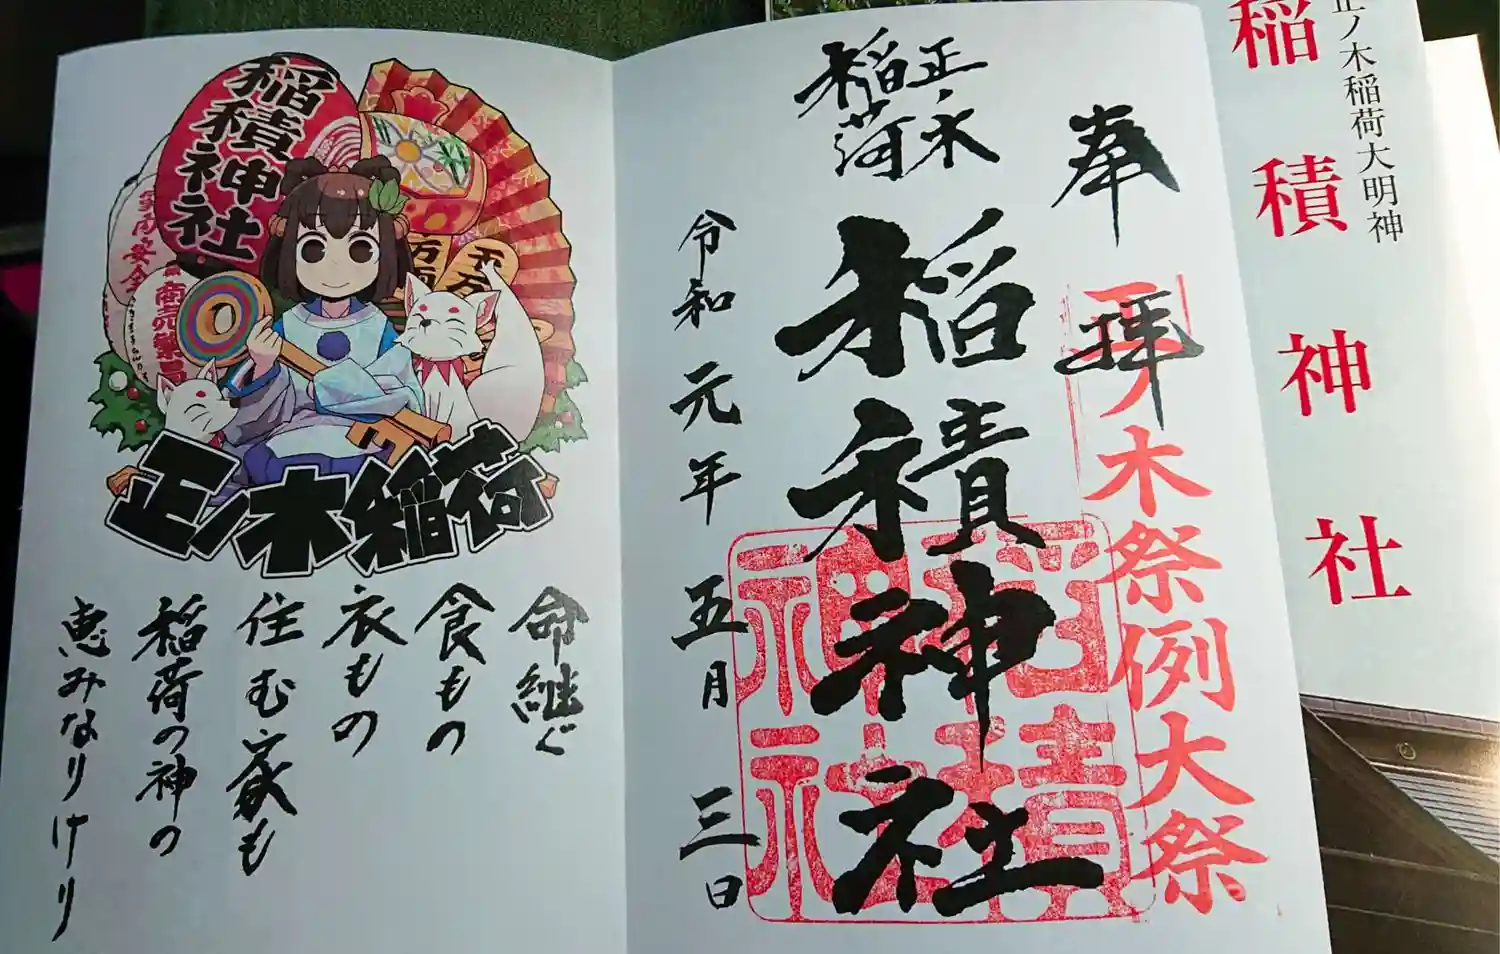 正ノ木稲荷大明神
稲積神社
奉拝
正ノ木祭例大祭
正ノ木
稲荷
稲積神社
稲積神社
令和元年五月三日
稲積神社
家内安全
商売繁昌
千万両
万両
正ノ木稲荷
命継ぐ
食もの
衣もの
住む家も
稲荷の神の
恵みなりけり